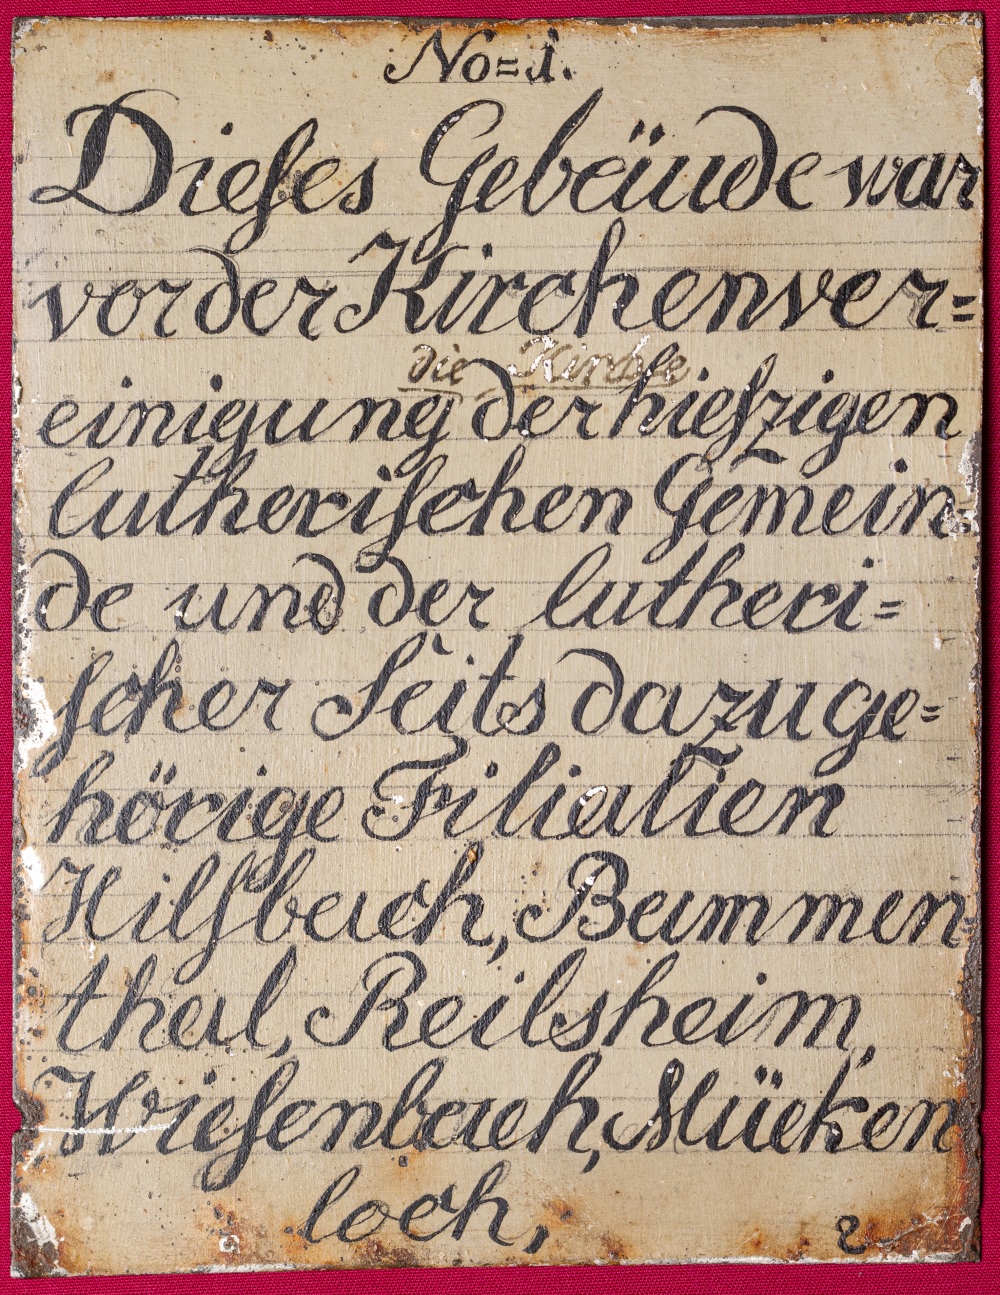 No=1.
Dieſes Gebäude war
vor der Kirchenver=
die Kirche
einigung der hieſzigen
lutheriſchen Gemein=
de und der lutheri=
ſcher Seits dazuge=
hörige Filialien
Hilſbach, Bammen=
thal, Reilsheim,
Wieſenbach, Mücken
loch,